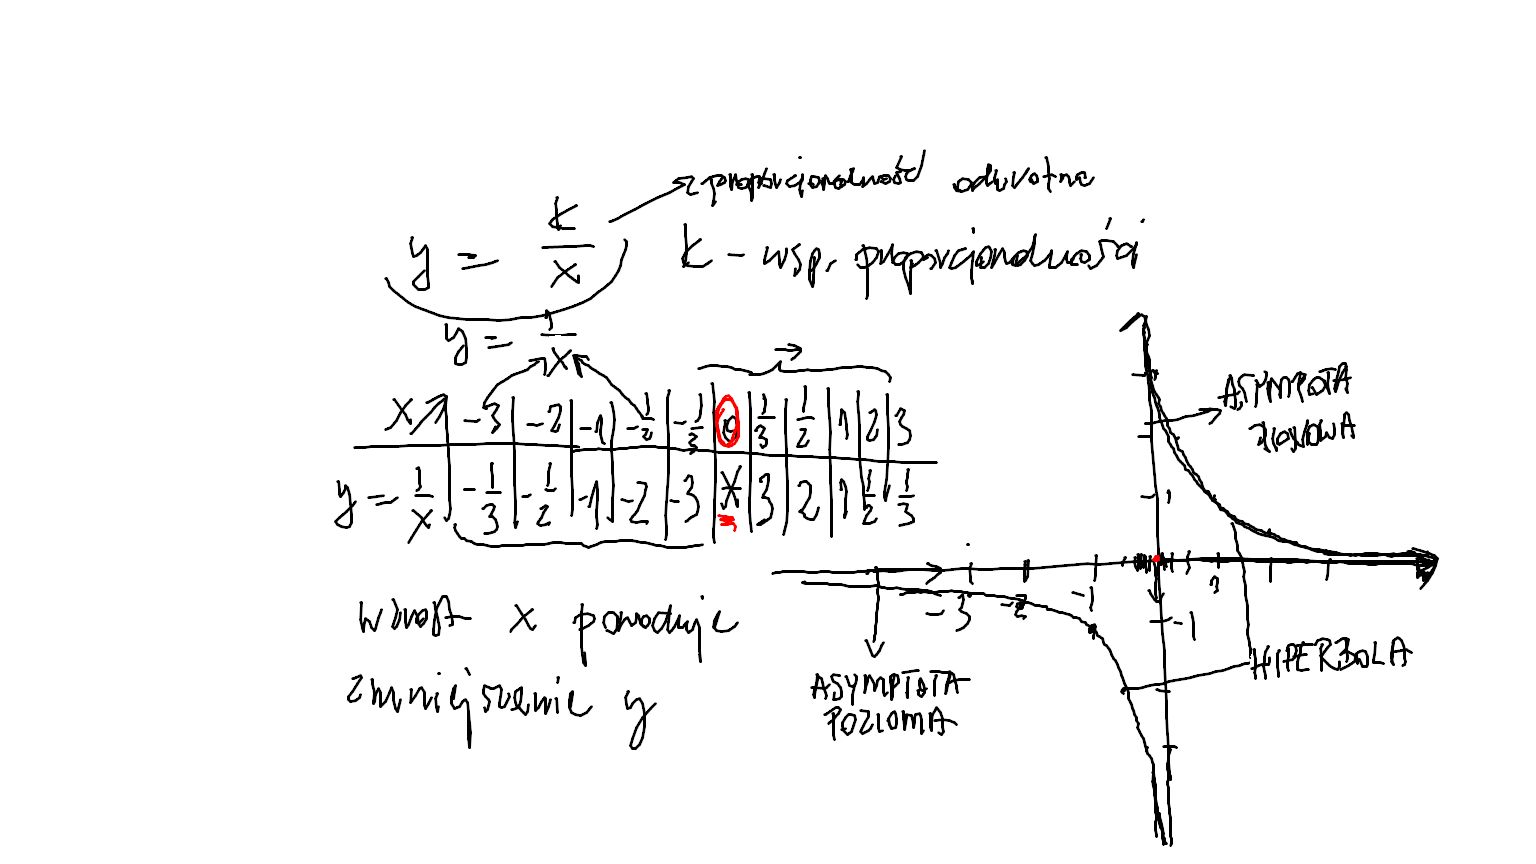 proporcjonalność odwrotna
y = k/x k - wsp. proporcjonalności
y = 1/x
x -3 -2 -1 -1/2 -1/3 0 1/3 1/2 1 2 3
y = 1/x -1/3 -1/2 -1 -2 -3 X 3 2 1 1/2 1/3
wzrost x powoduje
zmniejszenie y
ASYMPTOTA
PIONOWA
1
3
-3 -2 -1
-1
HIPERBOLA
ASYMPTOTA
POZIOMA